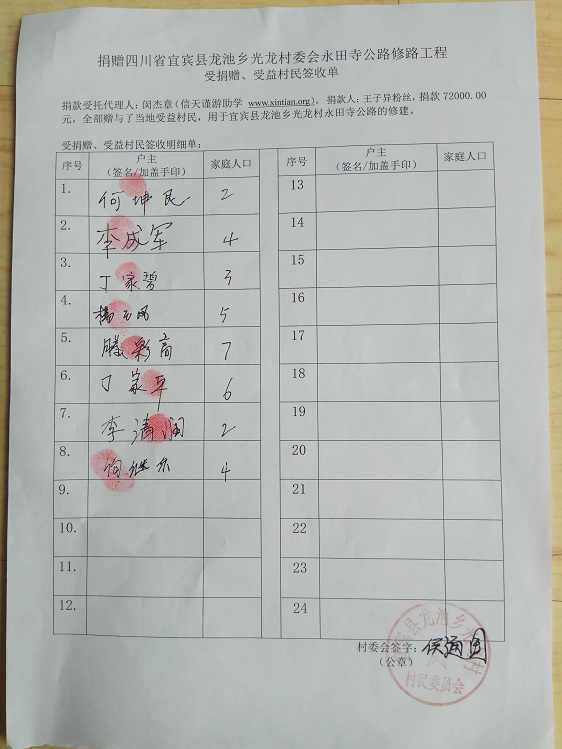 捐赠四川省宜宾县龙池乡光龙村委会永田寺公路修路工程
受捐赠、受益村民签收单
捐款受托代理人：闵杰章（信天谨游助学 www.xintian.org），捐款人：王子异粉丝，捐款 72000.00
元，全部赠与了当地受益村民，用于宜宾县龙池乡光龙村永田寺公路的修建。
受捐赠、受益村民签收明细单：
序号 户主 家庭人口 序号 户主 家庭人口
（签名/加盖手印） （签名/加盖手印）
1. 何坤民 2 13
2. 李成军 4 14
3. 丁家碧 3 15
4. 杨 5 16
5. 滕彩商 7 17
6. 丁家平 6 18
7. 李清润 2 19
8. 继 4 20
9. 21
10. 22
11. 23
12. 24
村委会签字：侯通国
（公章）
县龙池乡光 村
村民委员会